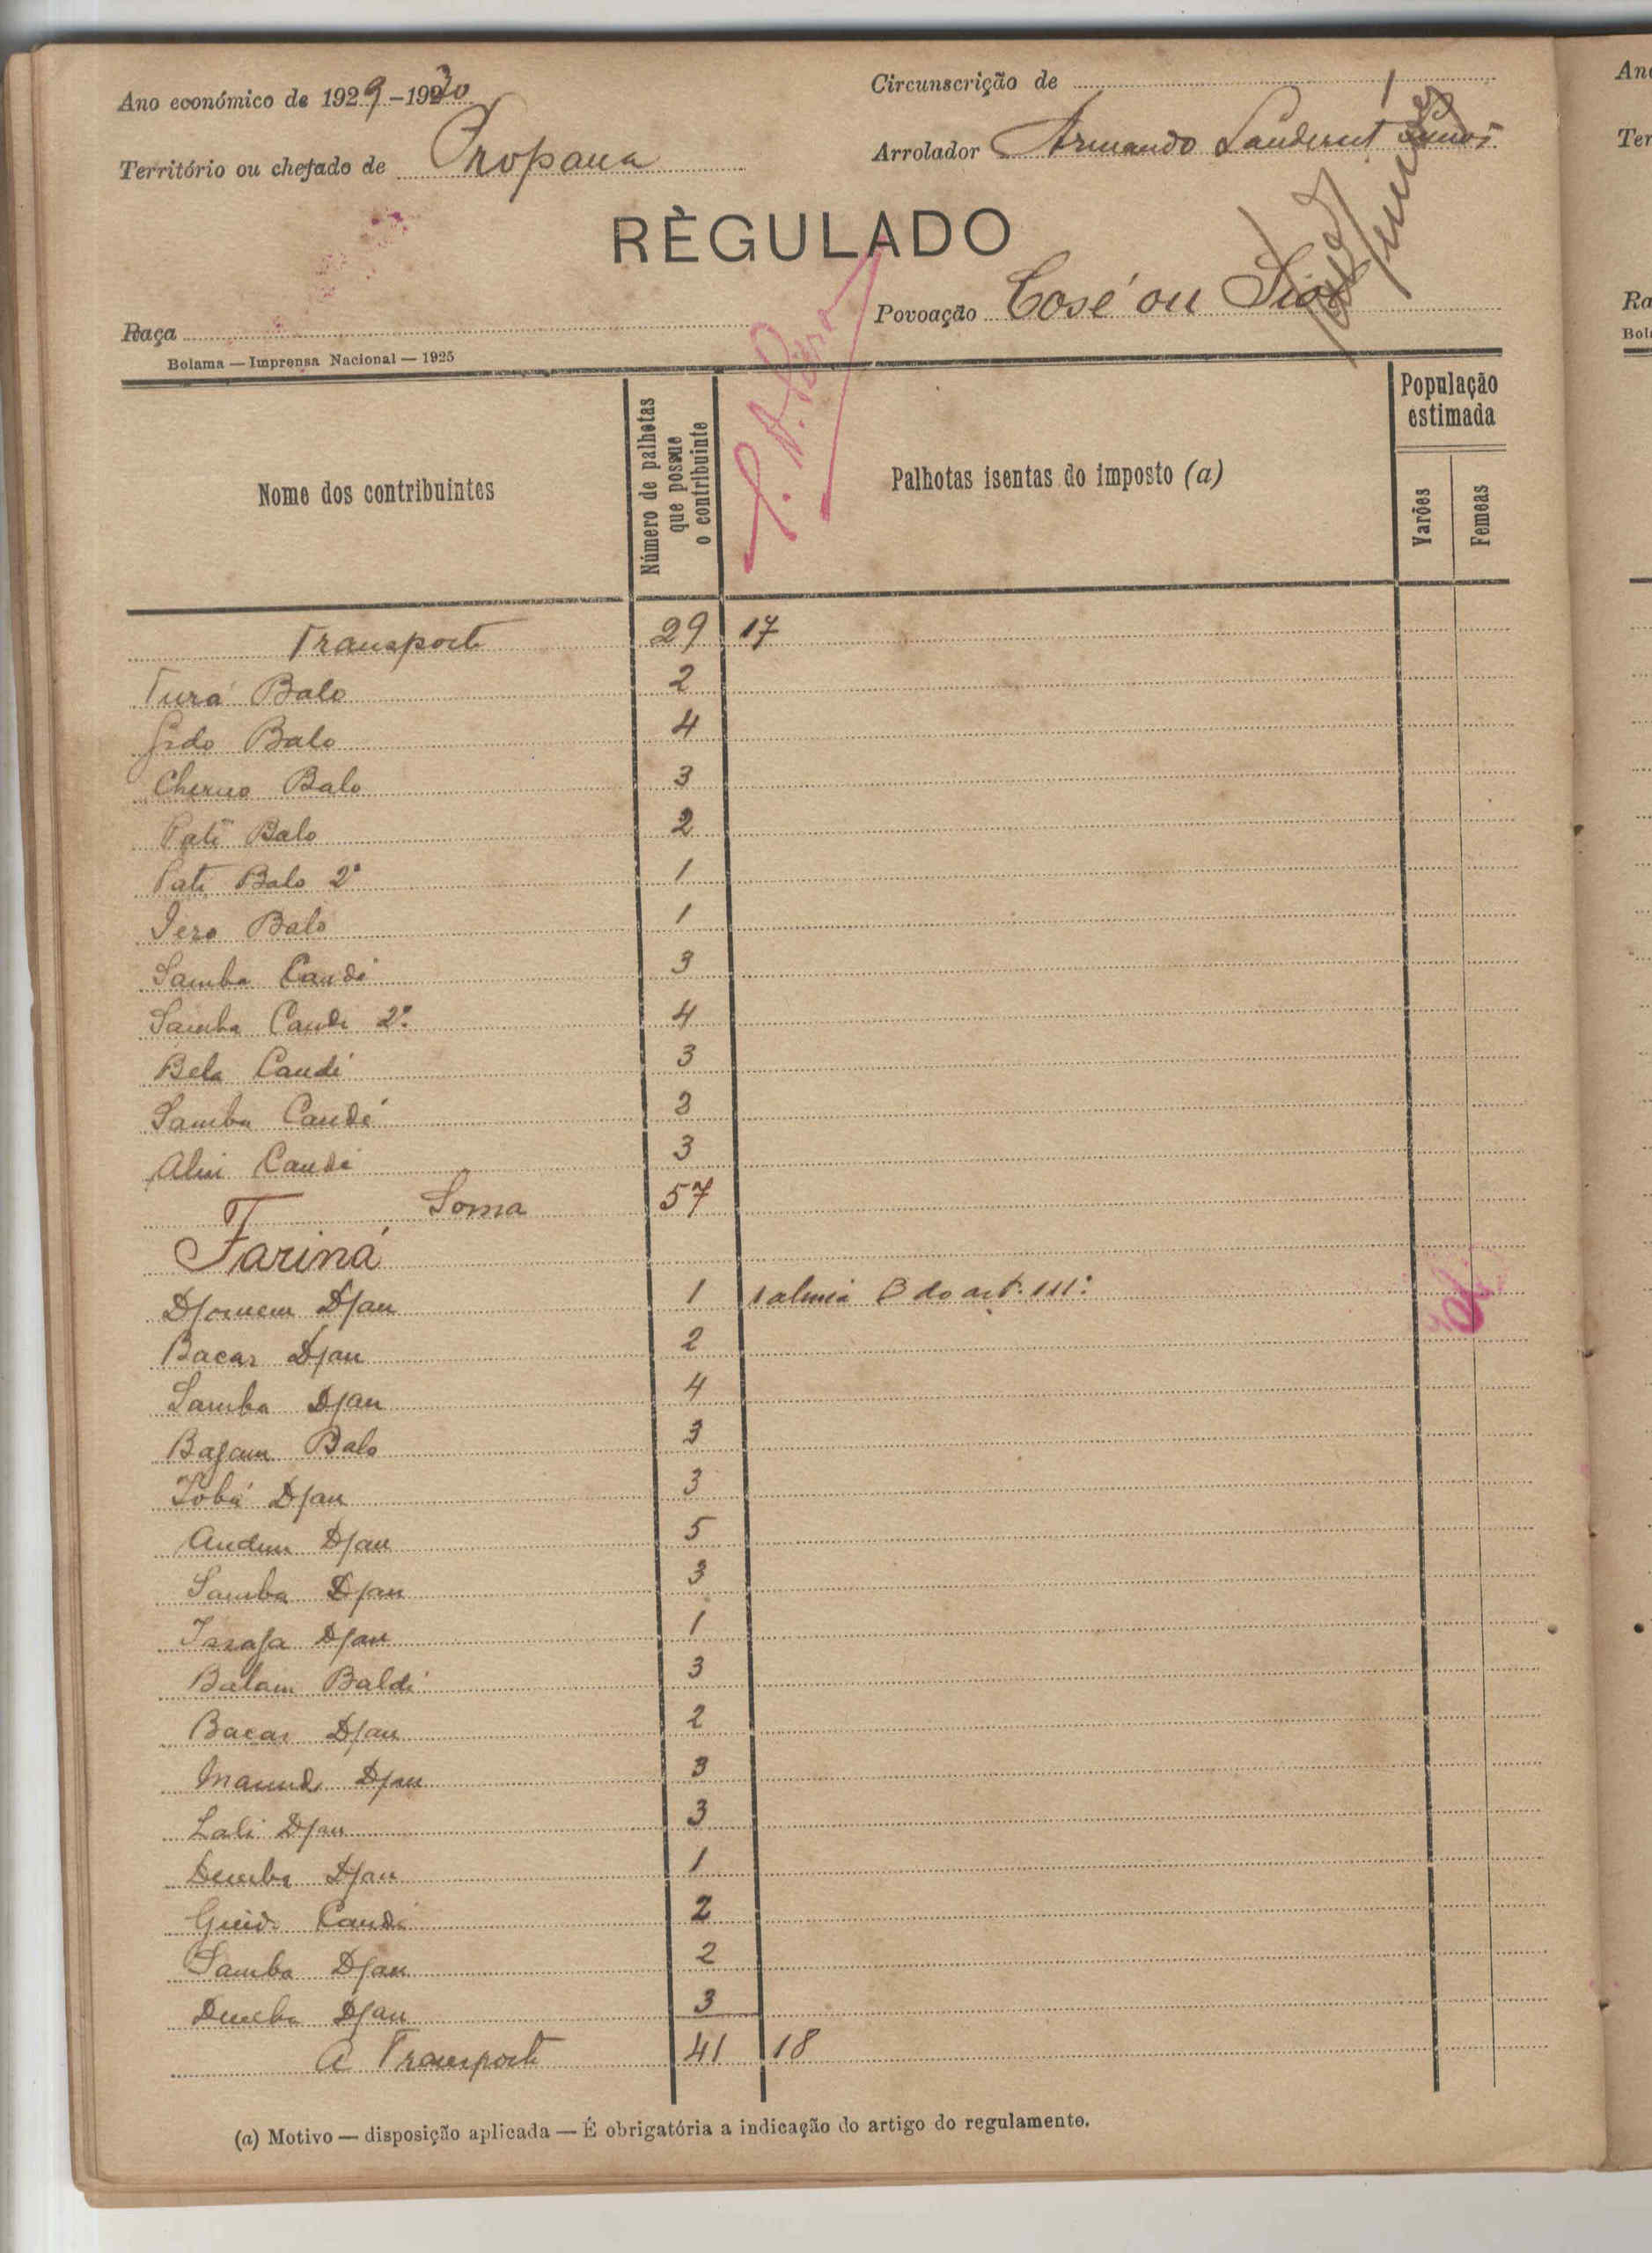 Ano económico de 1929-1930
Circunscrição de
Território ou chefado de Propana
Arrolador Armando
RÈGULADO
Raça
Povoação Cosé ou
Bolama — Imprensa Nacional — 1925
Nome dos contribuintes
Número de palhotas que possue o contribuinte
Palhotas isentas do imposto (a)
População estimada
Varões
Femeas
Transporte 29 17
Turá Balo 2
Balo 4
Cherno Balo 3
Pate Balo 2
Pate Balo 2º 1
Iero Balo 1
Samba Candé 3
Samba Cande 2º 4
Bela Candé 3
Samba Candé 3
Aliu Candé 3
Soma 57
Fariná
Djomem Djau 1 1 alinea B do art. 111º
Bacar Djau 2
Samba Djau 4
Bajam Balo 3
Iobá Djau 3
Djau 5
Samba Djau 3
Issafa Djau 1
Balam Baldé 3
Bacar Djau 2
Djau 3
Lali Djau 3
Demba Djau 1
Candé 2
Samba Djau 2
Demba Djau 3
A Transporte 41 18
(a) Motivo — disposição aplicada — É obrigatória a indicação do artigo do regulamento.